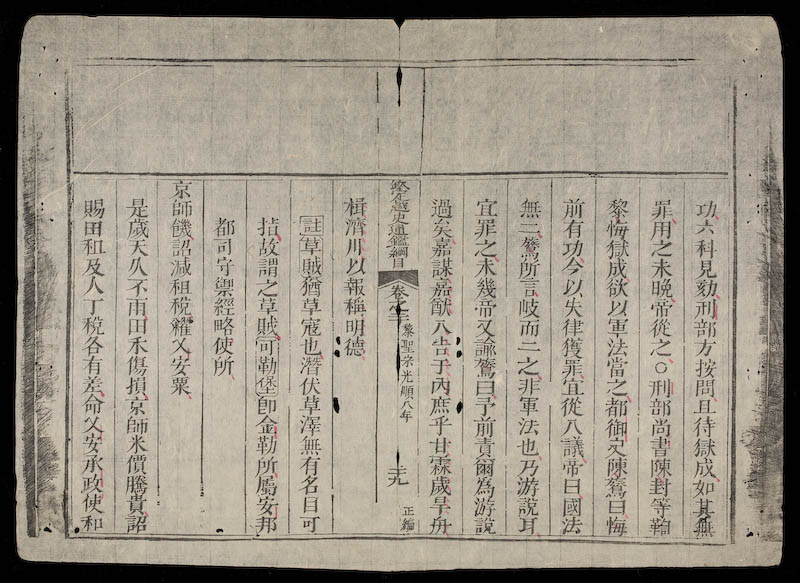 功六科見劾刑部方按問且待獄成如其無
罪用之未晚帝從之○刑部尚書陳封等鞫
黎悔獄成欲以軍法當之都御史陳鷟曰悔
前有功今以失律獲罪宜從八議帝曰國法
無二鷟所言岐而二之非軍法也乃游說耳
宜罪之未幾帝又諭鷟曰予前責爾為游說
過矣嘉謀嘉猷入告于內庶乎甘霖歲旱舟
楫濟川以報稱明德
註草賊猶草寇也潛伏草澤無有名目可
指故謂之草賊可勒堡卽金勒所屬安邦
都司守禦經略使所
京師饑詔減租稅糴乂安粟
是歲天久不雨田禾傷損京師米價騰貴詔
賜田租及人丁稅各有差命乂安承政使和
欽定越史通鑑綱目 卷之 黎聖宗光順八年 正編